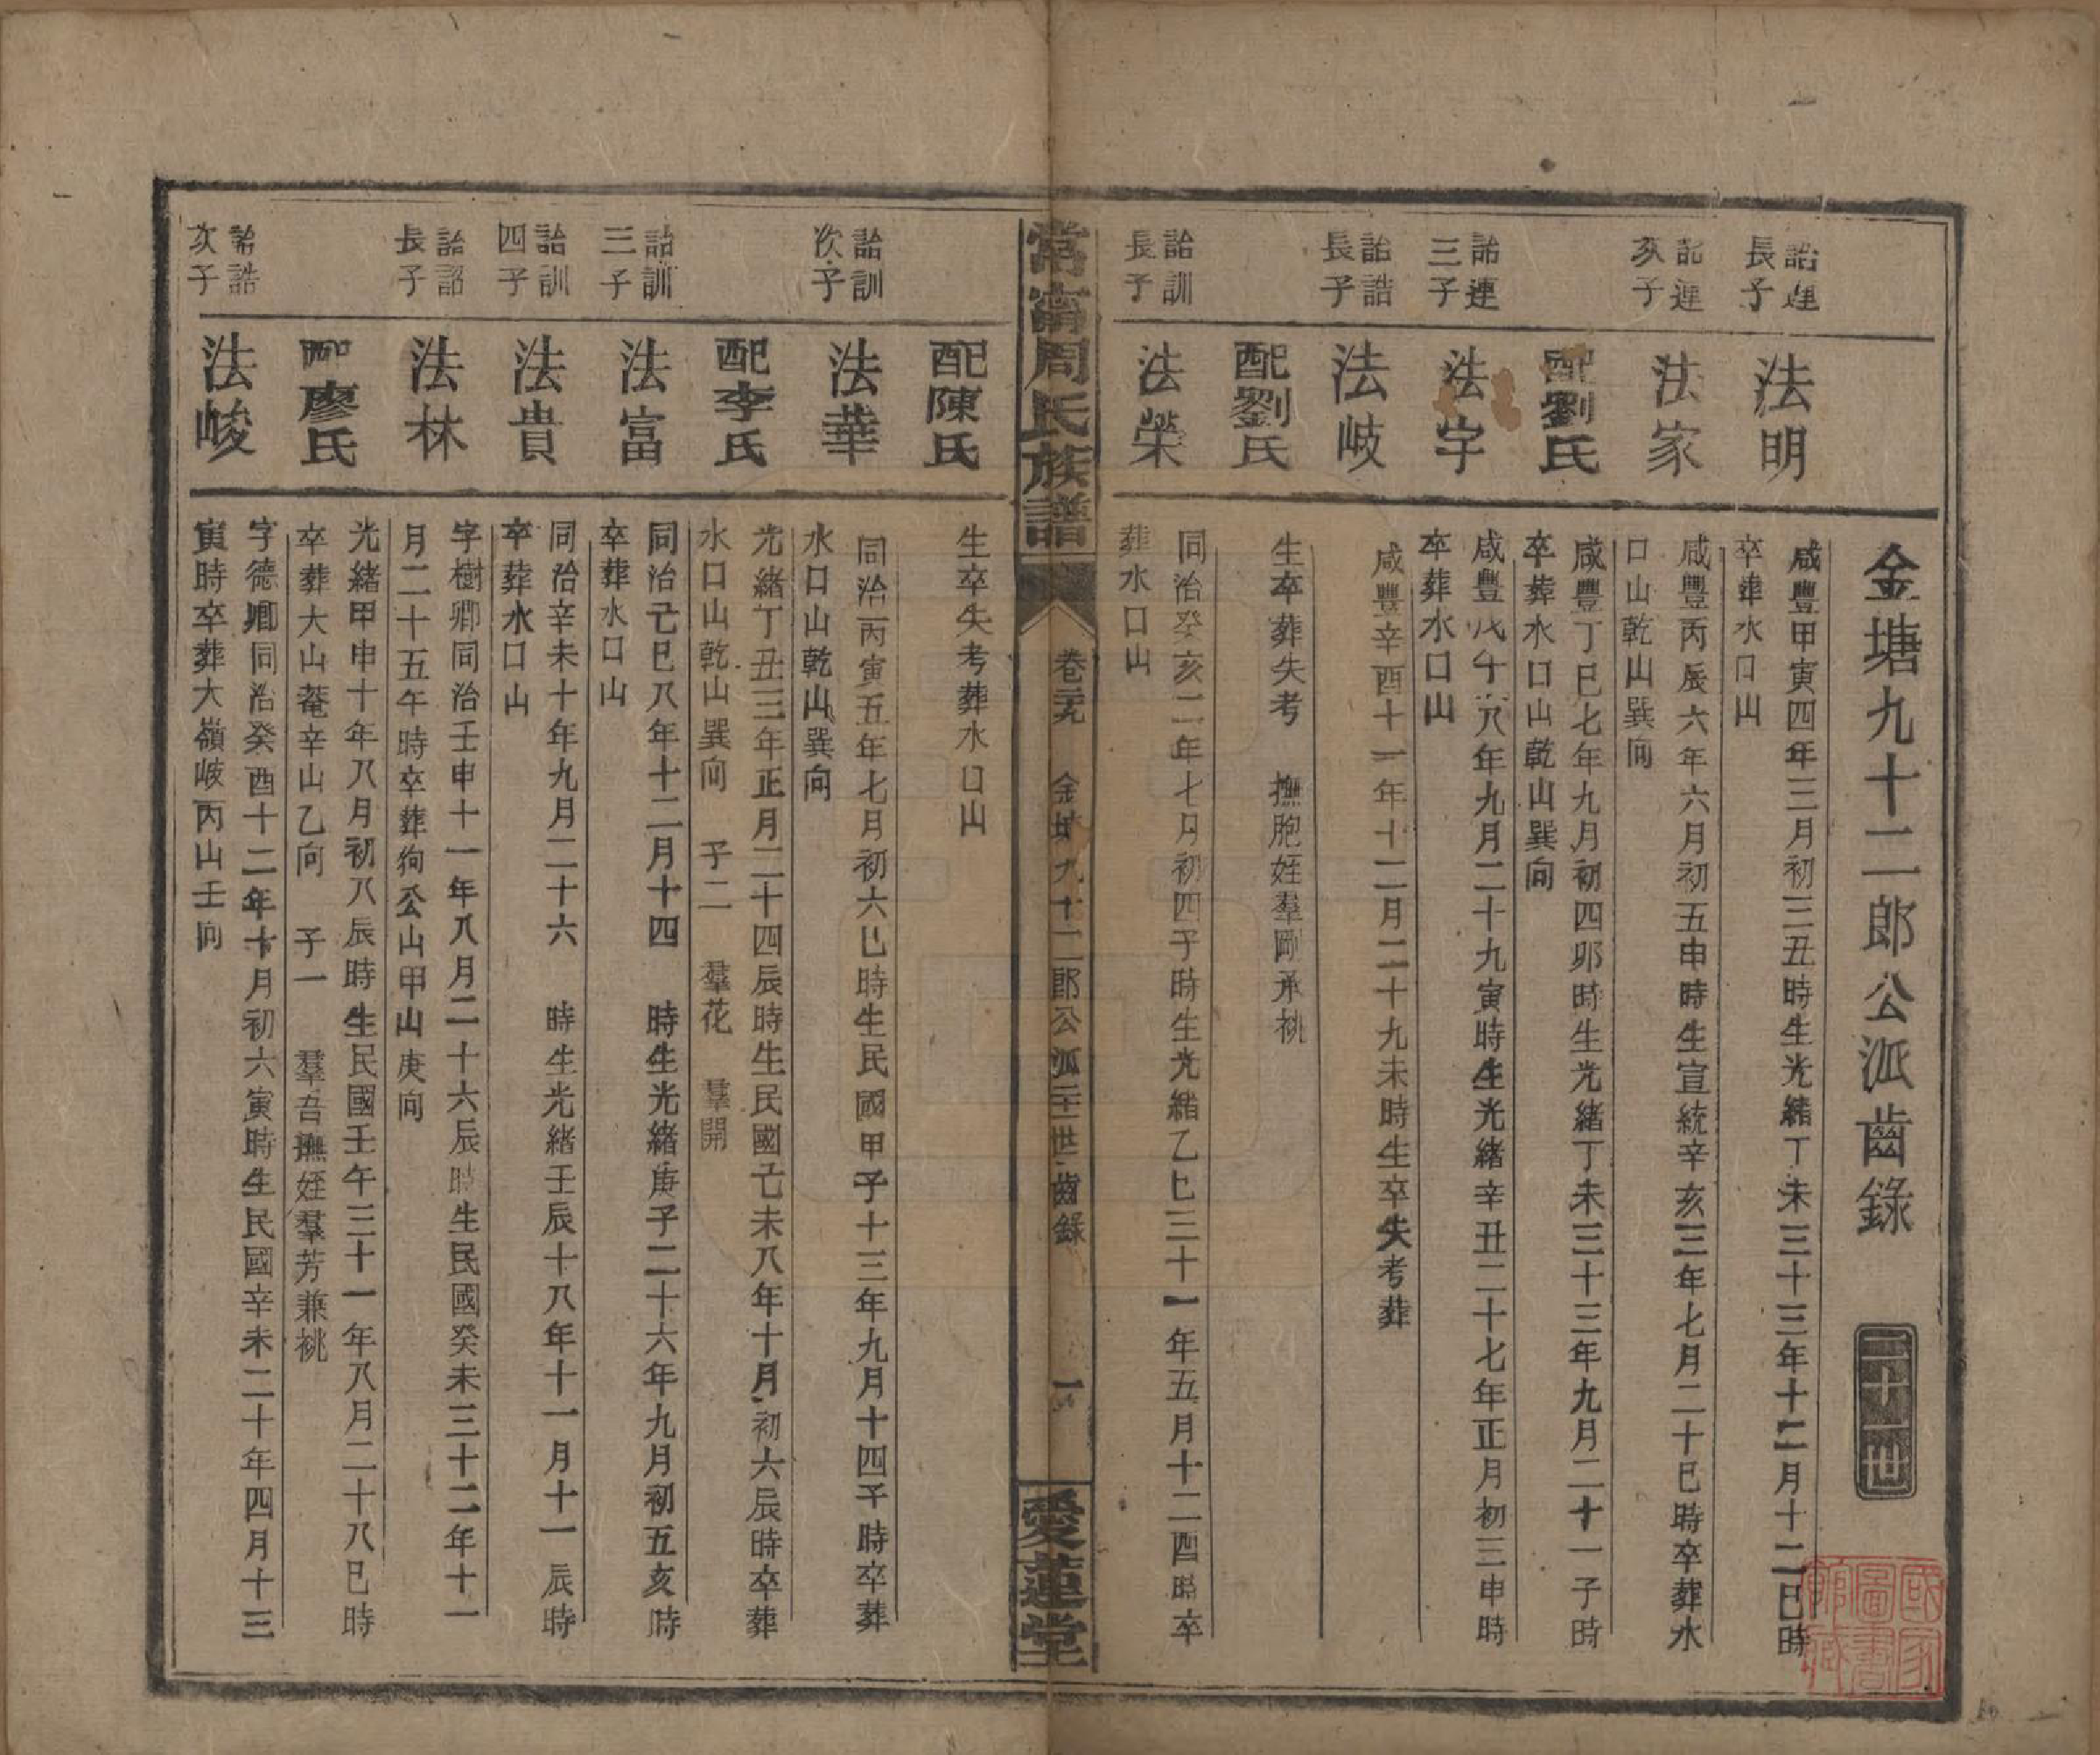 金塘九十二郎公派齒錄 二十一世
詒連長子
法明
咸豐甲寅四年三月初三丑時生光緒丁未三十三年十二月十二巳時
卒葬水口山
詒連次子
法家
咸豐丙辰六年六月初五申時生宣統辛亥三年七月二十巳時卒葬水
口山乾山巽向
配劉氏
咸豐丁巳七年九月初四卯時生光緒丁未三十三年九月二十一子時
卒葬水口山乾山巽向
詒連三子
法宇
咸豐戊午八年九月二十九寅時生光緒辛丑二十七年正月初三申時
卒葬水口山
詒誥長子
法岐
咸豐辛酉十一年十二月二十九未時生卒失考葬
配劉氏
生卒葬失考 撫胞姪羣剛承祧
詒訓長子
法榮
同治癸亥二年七月初四子時生光緒乙巳三十一年五月十二酉時卒
葬水口山
常甯周氏族譜
卷二九
金塘九十二郎公派二十一世齒錄
一
愛蓮堂
配陳氏
生卒失考葬水口山
詒訓次子
法華
同治丙寅五年七月初六巳時生民國甲子十三年九月十四午時卒葬
水口山乾山巽向
配李氏
光緒丁丑三年正月二十四辰時生民國己未八年十月初六辰時卒葬
水口山乾山巽向 子二 羣花 羣開
詒訓三子
法富
同治己巳八年十二月十四 時生光緒庚子二十六年九月初五亥時
卒葬水口山
詒訓四子
法貴
同治辛未十年九月二十六 時生光緒壬辰十八年十一月十一辰時
卒葬水口山
詒詔長子
法林
字樹卿同治壬申十一年八月二十六辰時生民國癸未三十二年十一
月二十五午時卒葬狗公山甲山庚向
配廖氏
光緒甲申十年八月初八辰時生民國壬午三十一年八月二十八巳時
卒葬大山菴辛山乙向 子一 羣吾撫姪羣芳兼祧
詒誥次子
法峻
字德卿同治癸酉十二年十月初六寅時生民國辛未二十年四月十三
寅時卒葬大嶺岐丙山壬向
國家圖書館藏